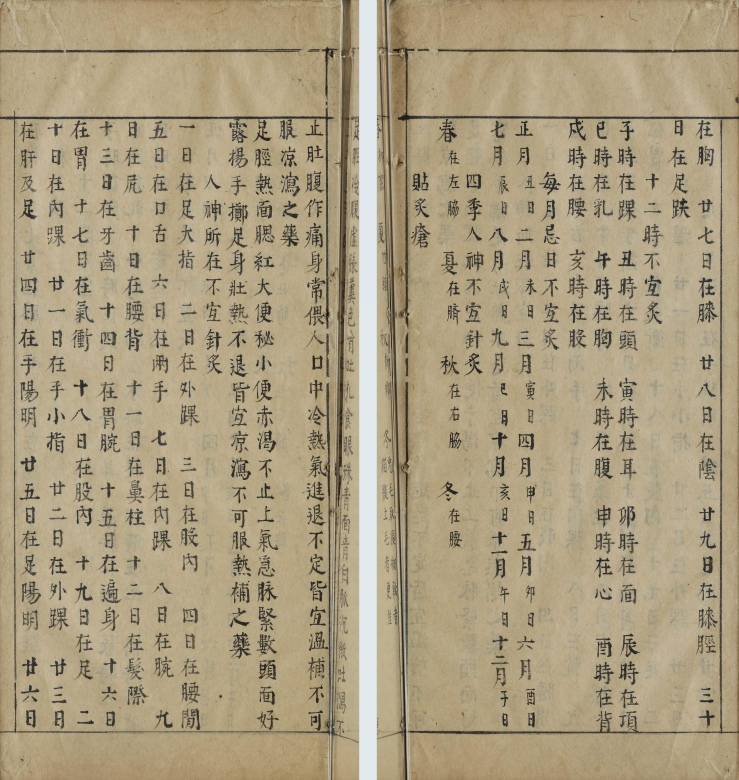 止肚腹作痛身常偎人口中冷熱氣進退不定皆宜溫補不可
服凉瀉之藥
足脛熱面腮紅大便秘小便赤渴不止上氣急脉緊數頭面好
露揚手擲足身壯熱不退皆宜凉瀉不可服熱補之藥
人神所在不宜針炙
一日在足大指 二日在外踝 三日在股內 四日在腰間
五日在口舌 六日在兩手 七日在內踝 八日在腕 九
日在尻 十日在腰背 十一日在鼻柱 十二日在髮際
十三日在牙齒 十四日在胃腕 十五日在遍身 十六日
在胃 十七日在氣衝 十八日在股內 十九日在足 二
十日在內踝 廿一日在手小指 廿二日在外踝 廿三日
在肝及足 廿四日在手陽明 廿五日在足陽明 廿六日
在胸 廿七日在膝 廿八日在陰 廿九日在膝脛 三十
日在足趺
十二時不宜炙
子時在踝 丑時在頭 寅時在耳 卯時在面 辰時在項
巳時在乳 午時在胸 未時在腹 申時在心 酉時在背
戌時在腰 亥時在股
每月忌日不宜炙
正月丑日二月未日三月寅日四月申日五月卯日六月酉日
七月辰日八月戌日九月巳日十月亥日十一月午日十二月子日
四季人神不宜針炙
春在左脇 夏在臍 秋在右脇 冬在腰
貼炙瘡